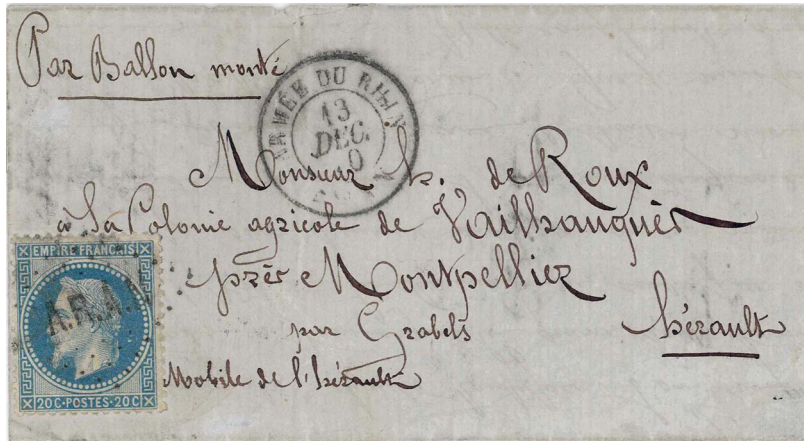 Par Ballon monté
ARMÉE DU RHIN
13
DEC.
Monsieur h. de Roux
à La Colonie agricole de Vailhauquès
près Montpellier
par Grabels
hérault
Mobile de l'hérault
EMPIRE FRANÇAIS
20C-POSTES-20C